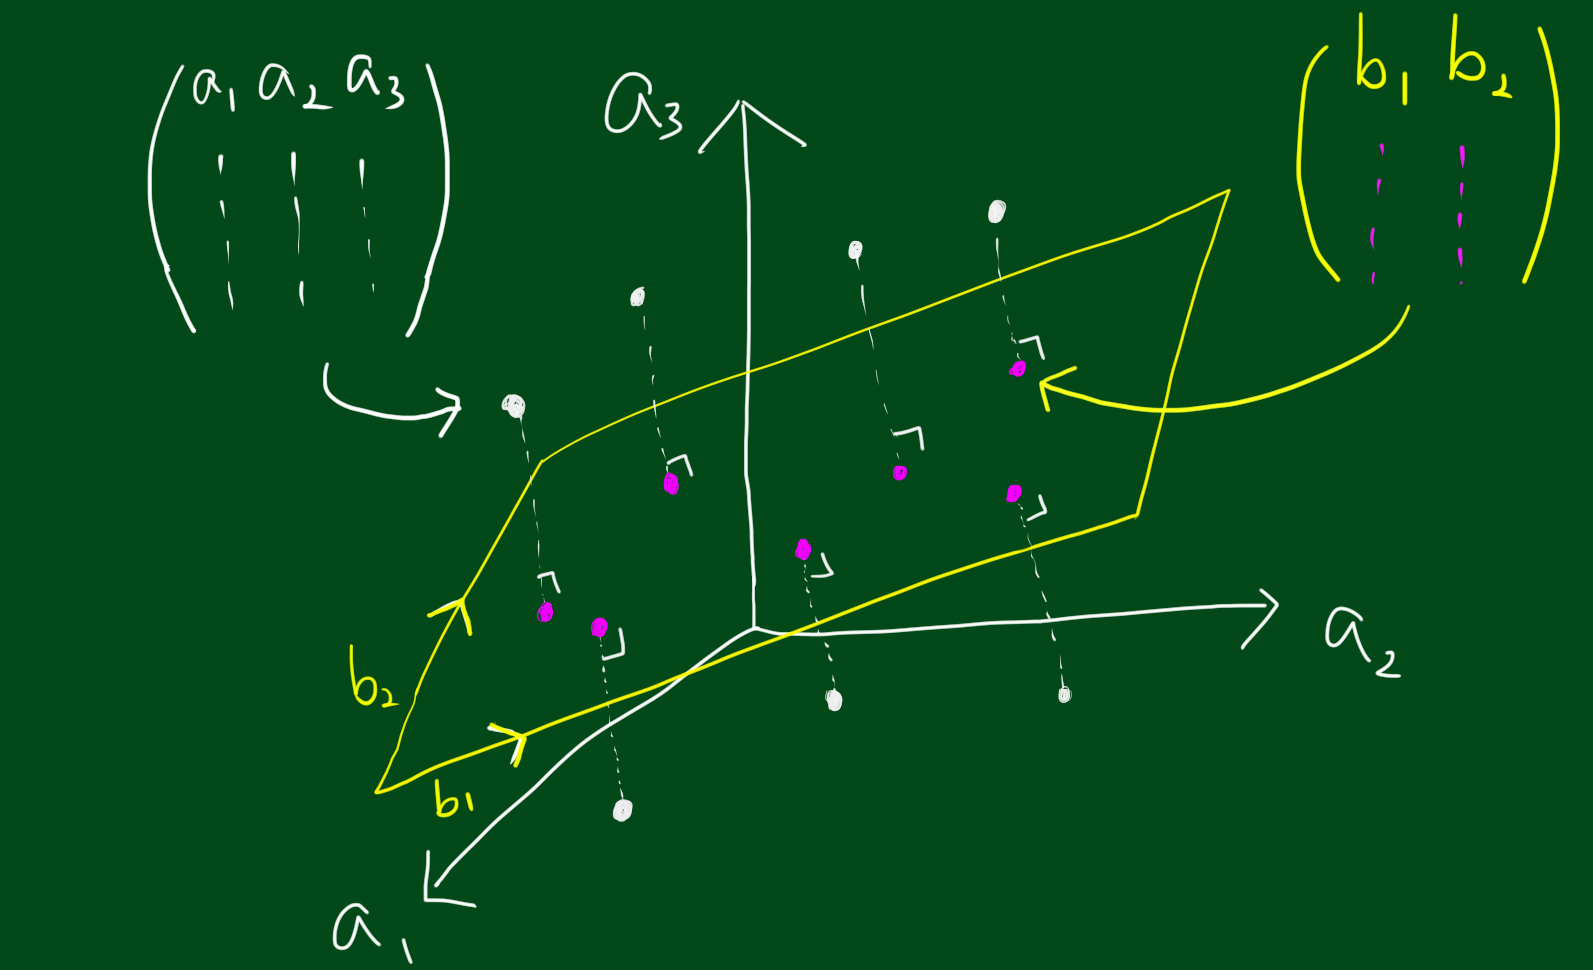 a₁ a₂ a₃
a₃
b₁ b₂
a₂
b₂
b₁
a₁